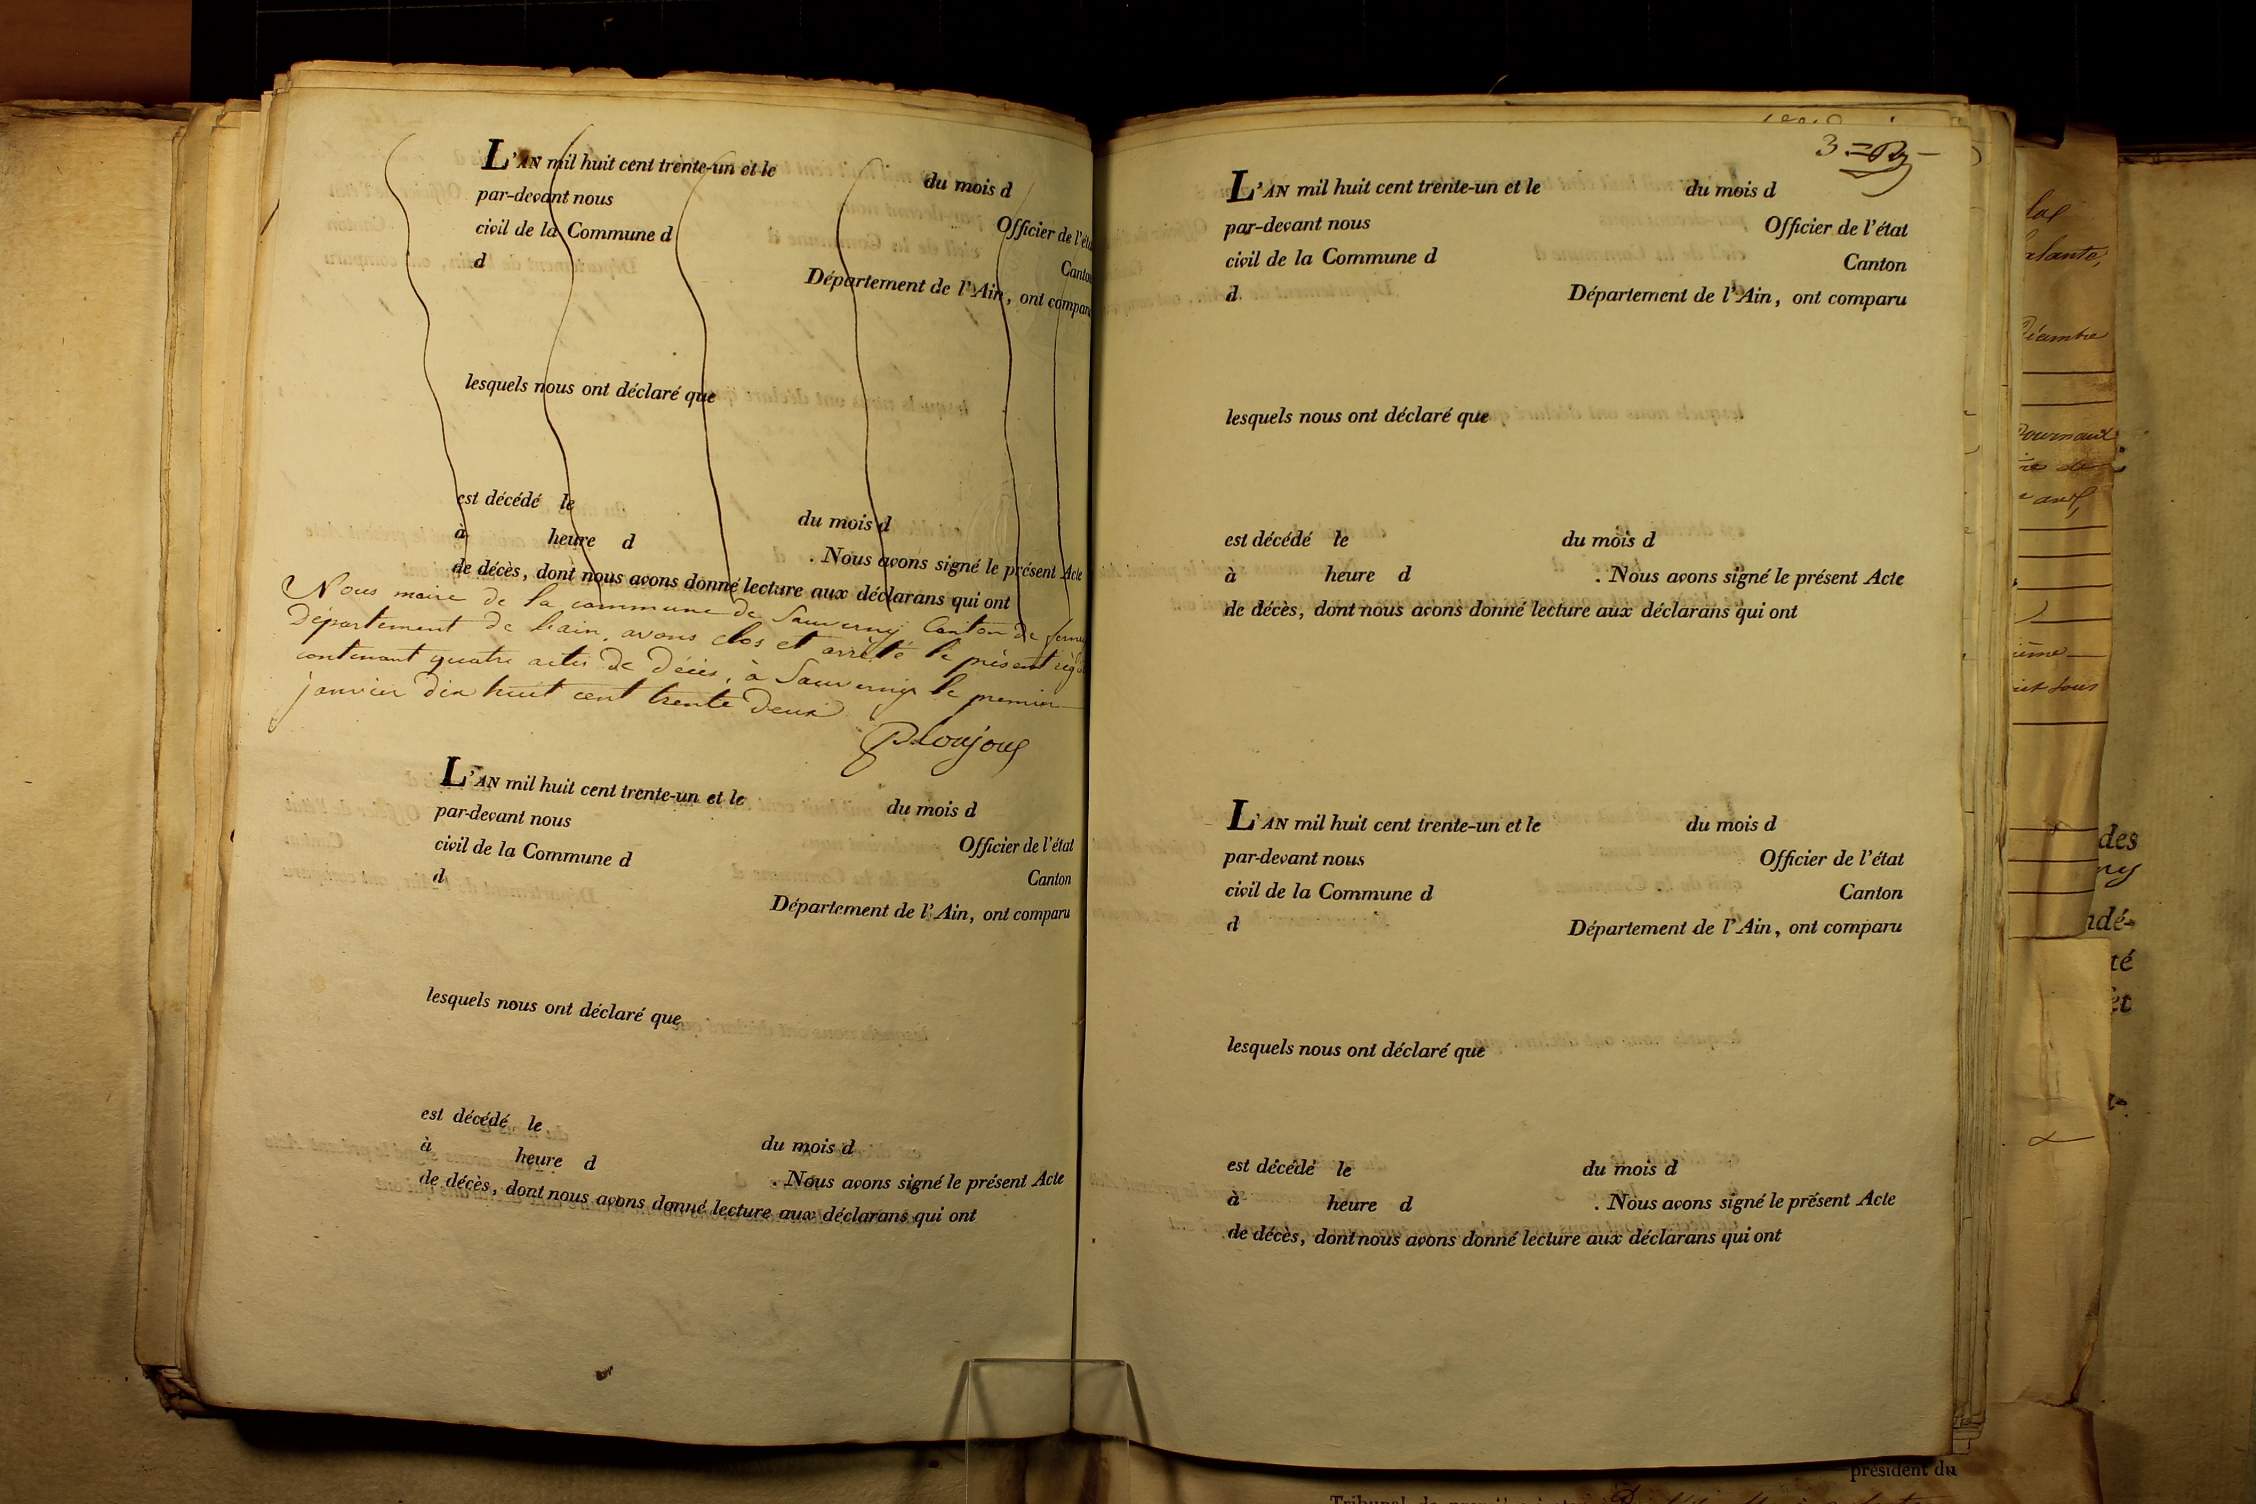 L'AN mil huit cent trente-un et le du mois d
par-devant nous Officier de l'éta
civil de la Commune d Canton
d Département de l'Ain, ont compar
lesquels nous ont déclaré que
est décédé le du mois d
à heure d . Nous avons signé le présent Acte
de décès, dont nous avons donné lecture aux déclarans qui ont
Nous maire de la commune de Sauverny Canton de ferne
Département de l'ain, avons clos et arrêté le présent rég
contenant quatre actes de Décès, à Sauverny le premier
janvier dix huit cent trente Deux
L'AN mil huit cent trente-un et le du mois d
par-devant nous Officier de l'état
civil de la Commune d Canton
d Département de l'Ain, ont comparu
lesquels nous ont déclaré que
est décédé le du mois d
à heure d . Nous avons signé le présent Acte
de décès, dont nous avons donné lecture aux déclarans qui ont
3
L'AN mil huit cent trente-un et le du mois d
par-devant nous Officier de l'état
civil de la Commune d Canton
d Département de l'Ain, ont comparu
lesquels nous ont déclaré que
est décédé le du mois d
à heure d . Nous avons signé le présent Acte
de décès, dont nous avons donné lecture aux déclarans qui ont
L'AN mil huit cent trente-un et le du mois d
par-devant nous Officier de l'état
civil de la Commune d Canton
d Département de l'Ain, ont comparu
lesquels nous ont déclaré que
est décédé le du mois d
à heure d . Nous avons signé le présent Acte
de décès, dont nous avons donné lecture aux déclarans qui ont
des
ndé-
té
et
président du